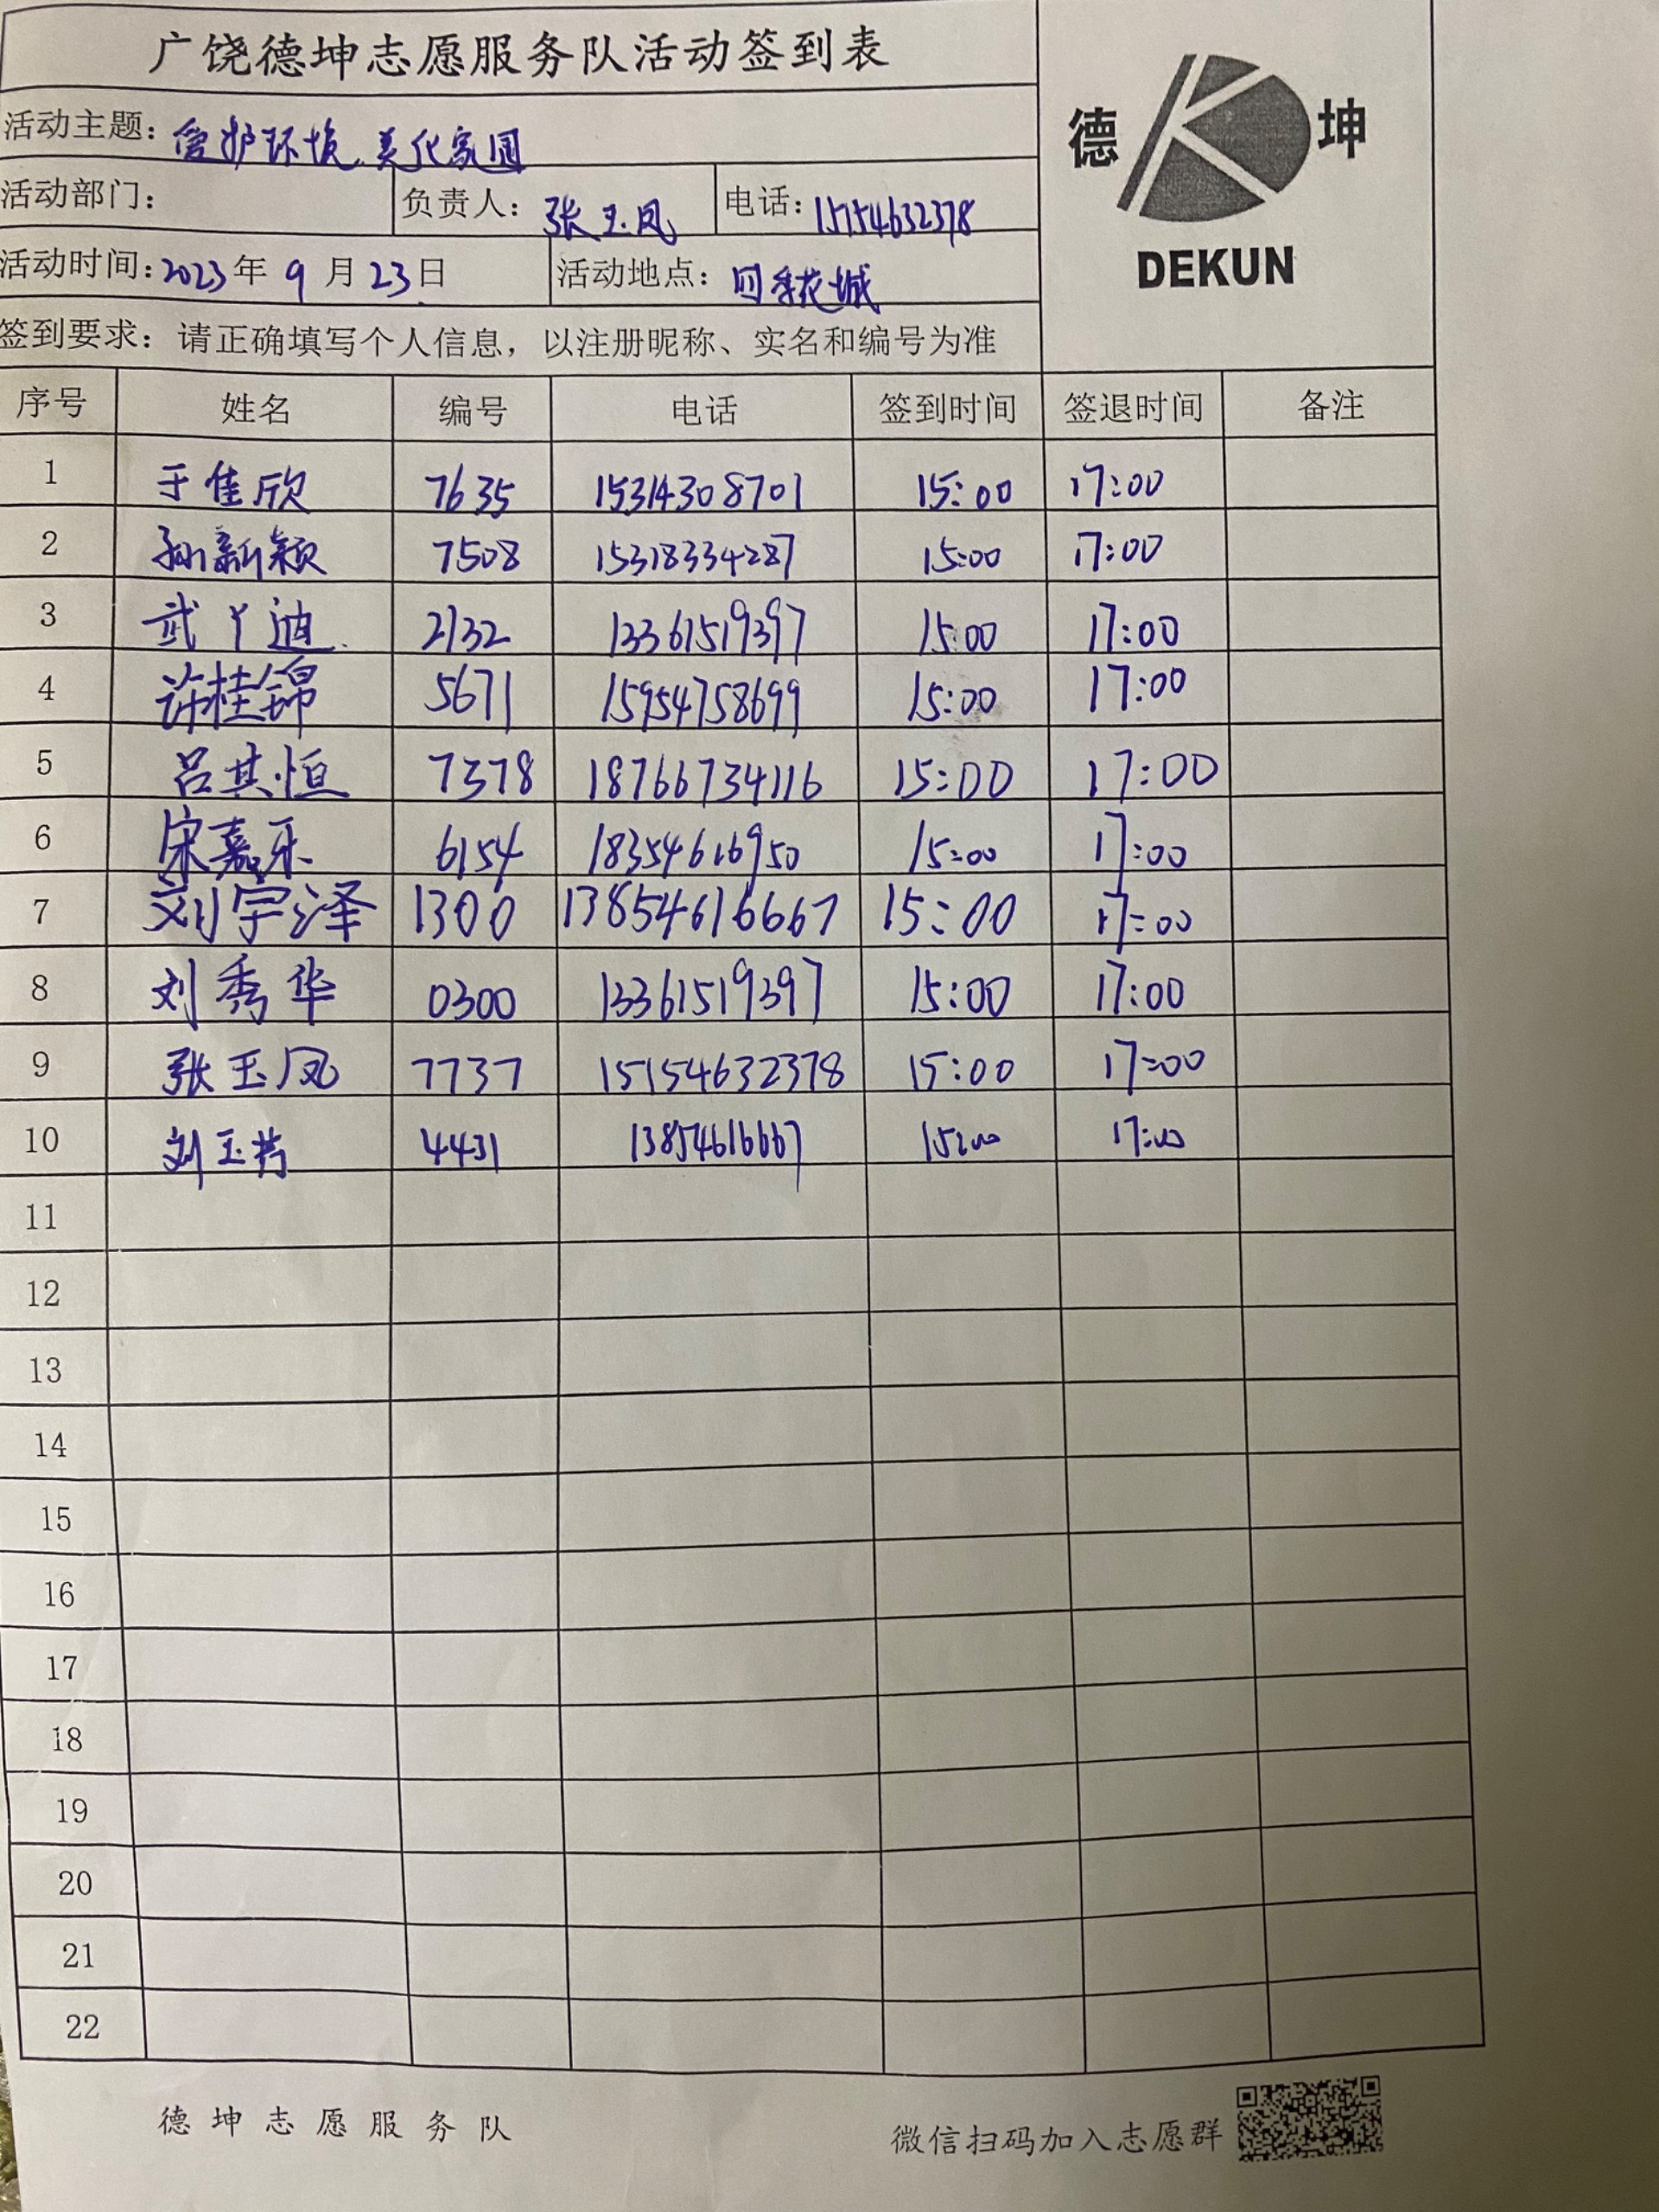 广饶德坤志愿服务队活动签到表
德 坤
DEKUN
活动主题：爱护环境 美化家园
活动部门： 负责人：张玉凤 电话：15154632378
活动时间：2023年9月23日 活动地点：四季花城
签到要求：请正确填写个人信息，以注册昵称、实名和编号为准
序号 姓名 编号 电话 签到时间 签退时间 备注
1 于佳欣 7635 15314308701 15:00 17:00
2 孙新颖 7508 15318334287 15:00 17:00
3 武丫迪 2132 13361519397 15:00 17:00
4 许桂锦 5671 15954758699 15:00 17:00
5 吕其恒 7378 18766734116 15:00 17:00
6 宋嘉乐 6154 18354616950 15:00 17:00
7 刘宇泽 1300 13854616667 15:00 17:00
8 刘秀华 0300 13361519397 15:00 17:00
9 张玉凤 7737 15154632378 15:00 17:00
10 刘玉 4431 13854616667 15:00 17:00
11
12
13
14
15
16
17
18
19
20
21
22
德坤志愿服务队 微信扫码加入志愿群